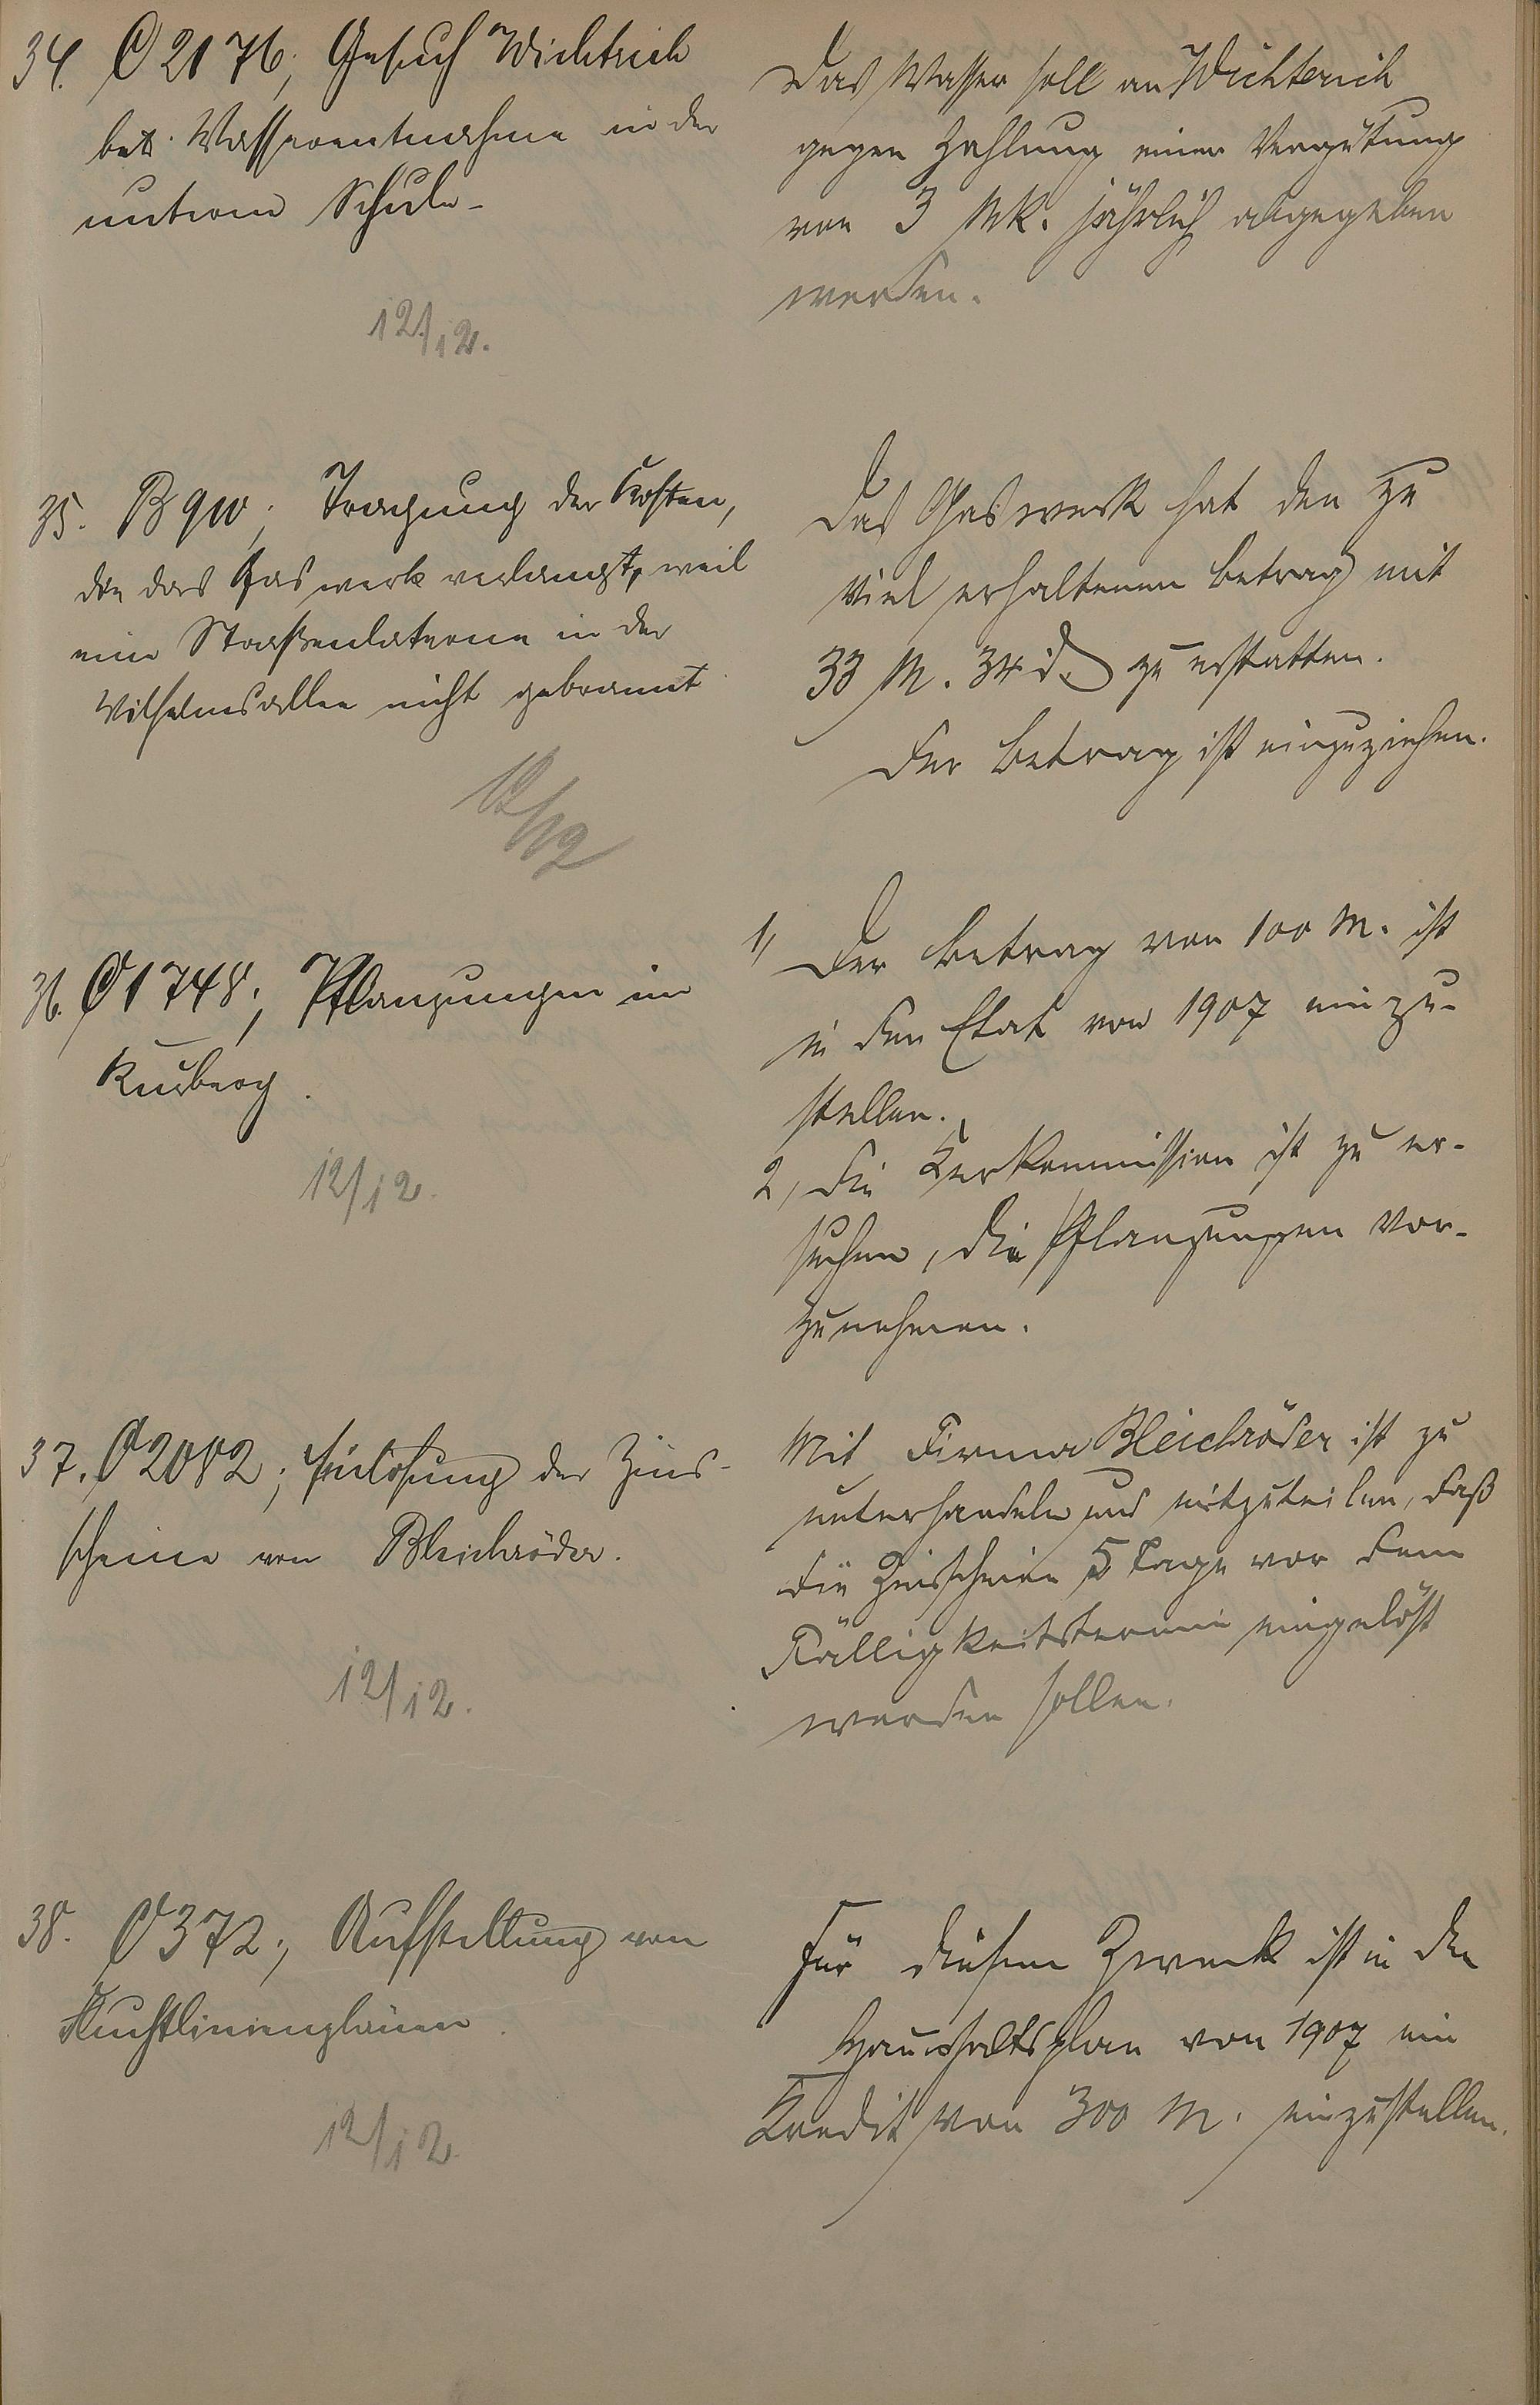 34. C 2176; Gesuch Wichtrich
betr. Wasserentnahme in der
unteren Schule.
12/12.
Das Wasser soll an Wichterich
gegen Zahlung einer Vergütung
von 3 Mk. jährlich abgegeben
werden.
35. B 910; Tragung der Kosten,
die das Gaswerk verlangt, weil
eine Straßenlaterne in der
Wilhelmsallee nicht gebrannt
12/12
Das Gaswerk hat den zu
viel erhaltenen Betrag mit
33 M. 34 d. zu erstatten.
Der Betrag ist einzuziehen.
36. C 1748; Pflanzungen im
Kurberg.
12/12.
1, Der Betrag von 100 M. ist
in den Etat von 1907 einzu-
stellen.
2, Die Kurkommission ist zu er-
suchen, die Pflanzungen vor-
zunehmen.
37. C 2082; Einlösung der Zins-
scheine von Bleichröder.
12/12.
Mit Firma Bleichröder ist zu
unterhandeln und mitzuteilen, daß
die Zinsscheine 5 Tage vor dem
Fälligkeitstermin eingelöst
werden sollen.
38. C 372; Aufstellung von
Fluchtlinienplänen.
12/12.
Für diesen Zweck ist in den
Haushaltsplan von 1907 ein
Kredit von 300 M. einzustellen.